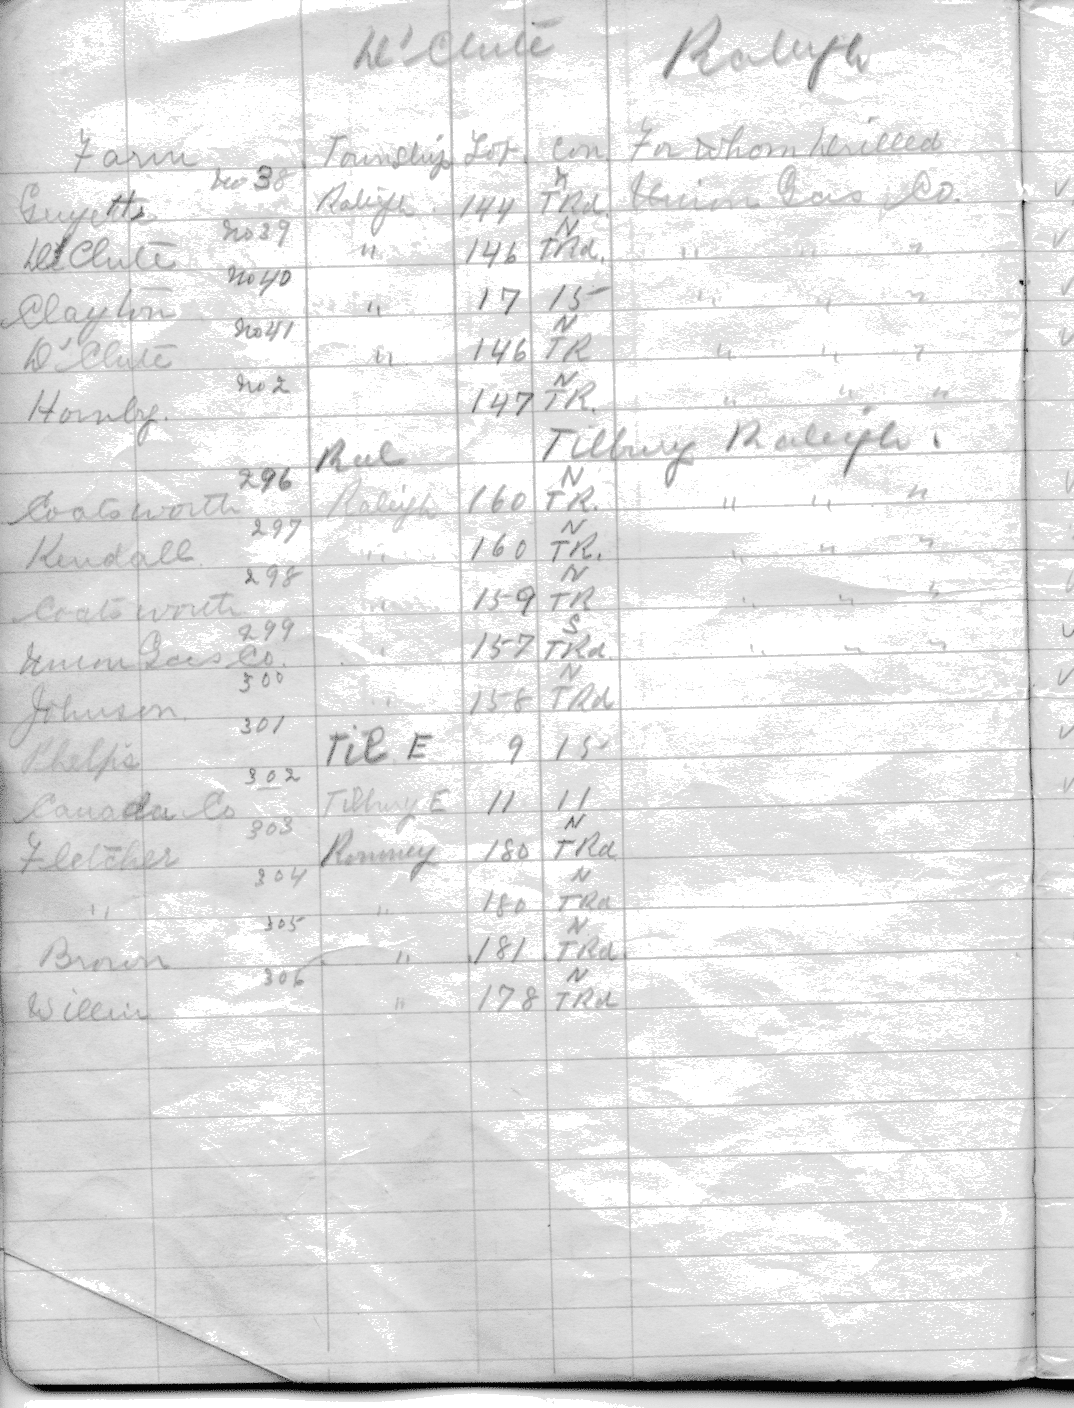 D'Clute Raleigh
Farm Township Lot Con. For Whom Drilled
No 38 N
Guyette Raleigh 144 TRd. Union Gas Co. ✓
No 39 N
D'Clute " 146 TRd. " " " ✓
No 40
Clayton " 17 15 " " " ✓
No 41 N
D'Clute " 146 TR " " " ✓
No 2 N
Hornby. 147 TR. " " "
Ral Tilbury Raleigh.
296 N
Coatsworth Raleigh 160 TR. " " " ✓
297 N
Kendall " 160 TR. " " "
298 N
Coatsworth " 159 TR " " "
299 S
Union Gas Co. " 157 TRd. " " " ✓
300 N
Johnson. " 158 TRd ✓
301
Phelps Til E 9 15 ✓
302
Canada Co Tilbury E 11 11 ✓
303 N
Fletcher Romney 180 TRd
304 N
" " 180 TRd
305 N
Brown " 181 TRd.
306 N
" 178 TRd